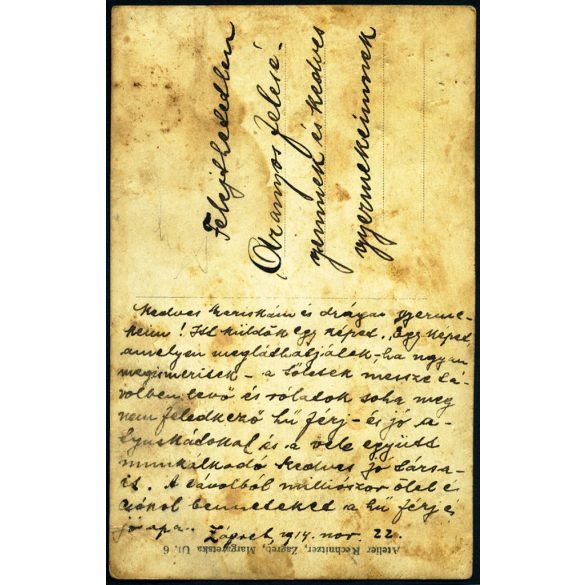 Felejthetetlen
Aranyos felesé-
gemnek és kedves
gyermekeimnek
Kedves Keriskám és drágán gyerme-
keim! Itt küldök egy képet. Egy képet,
amelyen megláthatjátok, ha ugyan
megismeritek - a bölcsek messze tá-
volben levő és rólatok soha meg
nem feledkező hű férj- és jó a-
tyuskátokat és a vele együtt
munkálkodó kedves jó társa-
it. A távolból milliószor ölel é
csókol benneteket a hű férj és
jó apa. Zágreb, 1914. nov. 22.
Atelier Rechnitzer, Zagreb, Margaretska Ul. 6